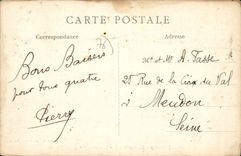 CARTE POSTALE
Correspondance
Adresse
78
Bons Baisers
pour tous quatre
Pierry
Mr et Mme A. Fasse
25 Rue de la Croix du Val
à Meudon
Seine